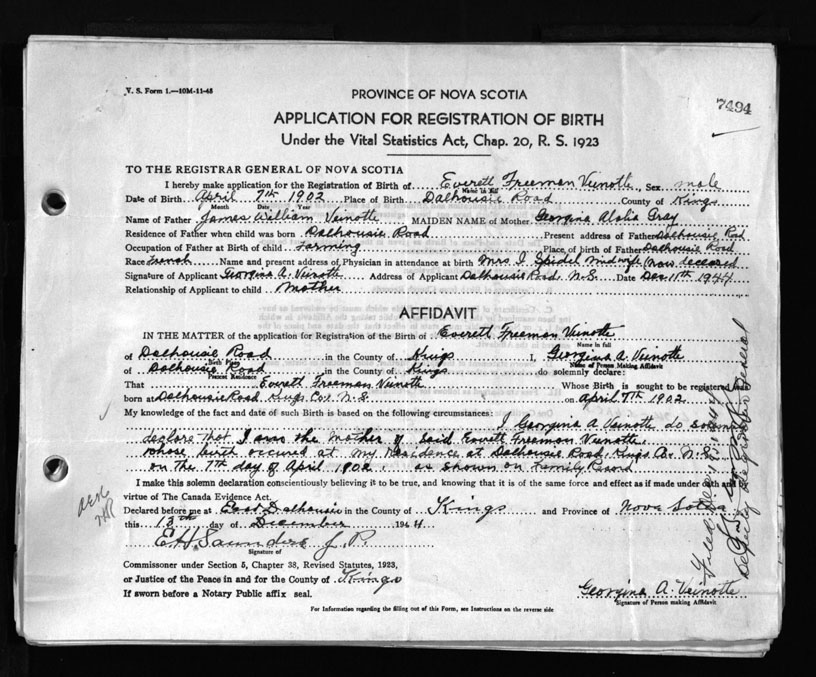 V. S. Form 1.—10M-11-43
PROVINCE OF NOVA SCOTIA
7494
APPLICATION FOR REGISTRATION OF BIRTH
Under the Vital Statistics Act, Chap. 20, R. S. 1923
TO THE REGISTRAR GENERAL OF NOVA SCOTIA
I hereby make application for the Registration of Birth of Everett Freeman Veinotte, Sex male
Name in full
Date of Birth April 7th 1902 Place of Birth Dalhousie Road County of Kings
Month Date Year
Name of Father James William Veinotte MAIDEN NAME of Mother Georgina Gray
Residence of Father when child was born Dalhousie Road Present address of Father Dalhousie Road
Occupation of Father at Birth of child Farming Place of birth of Father Dalhousie Road
Race French Name and present address of Physician in attendance at birth Mrs I Spidel midwife (now deceased
Signature of Applicant Georgina A. Veinotte Address of Applicant Dalhousie Road, N.S. Date Dec 11th 1944
Relationship of Applicant to child Mother
AFFIDAVIT
IN THE MATTER of the application for Registration of the Birth of Everett Freeman Veinotte
Name in full
of Dalhousie Road in the County of Kings I, Georgina A. Veinotte
Birth Place Name of Person Making Affidavit
of Dalhousie Road in the County of Kings do solemnly declare:
Present Residence
That Everett Freeman Veinotte Whose Birth is sought to be registered was
born at Dalhousie Road Kings Co. N.S. on April 7th 1902.
My knowledge of the fact and date of such Birth is based on the following circumstances:
I Georgina A Veinotte do solemn
declare that I am the Mother of Said Everett Freeman Veinotte,
whose birth occured at my Residence at Dalhousie Road, Kings Co. N.S.
on the 7th day of April 1902. as shown on Family Record
I make this solemn declaration conscientiously believing it to be true, and knowing that it is of the same force and effect as if made under oath and by
virtue of The Canada Evidence Act.
Declared before me at East Dalhousie in the County of Kings and Province of Nova Sotia
this 13th day of December 1944
E H Saunders J. P.
Signature of
Commissioner under Section 5, Chapter 38, Revised Statutes, 1923,
or Justice of the Peace in and for the County of Kings
If sworn before a Notary Public affix seal.
Georgina A. Veinotte
Signature of Person making Affidavit
For Information regarding the filling out of this Form, see Instructions on the reverse side
Filed
Deputy Registrar General